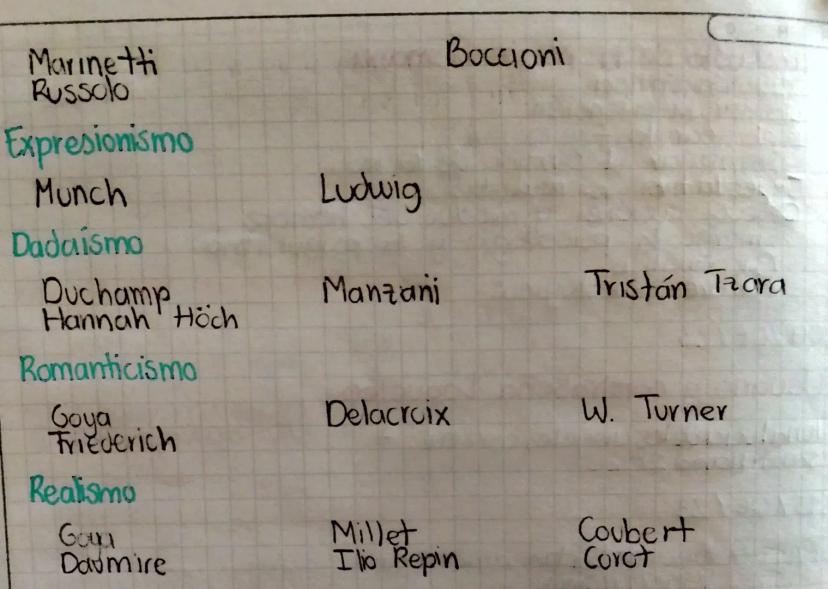 Marinetti Boccioni
Russolo
Expresionismo
Munch Ludwig
Dadaísmo
Duchamp Manzani Tristán Tzara
Hannah Höch
Romanticismo
Goya Delacroix W. Turner
Friederich
Realismo
Goya Millet Coubert
Daumire Ilio Repin Corot